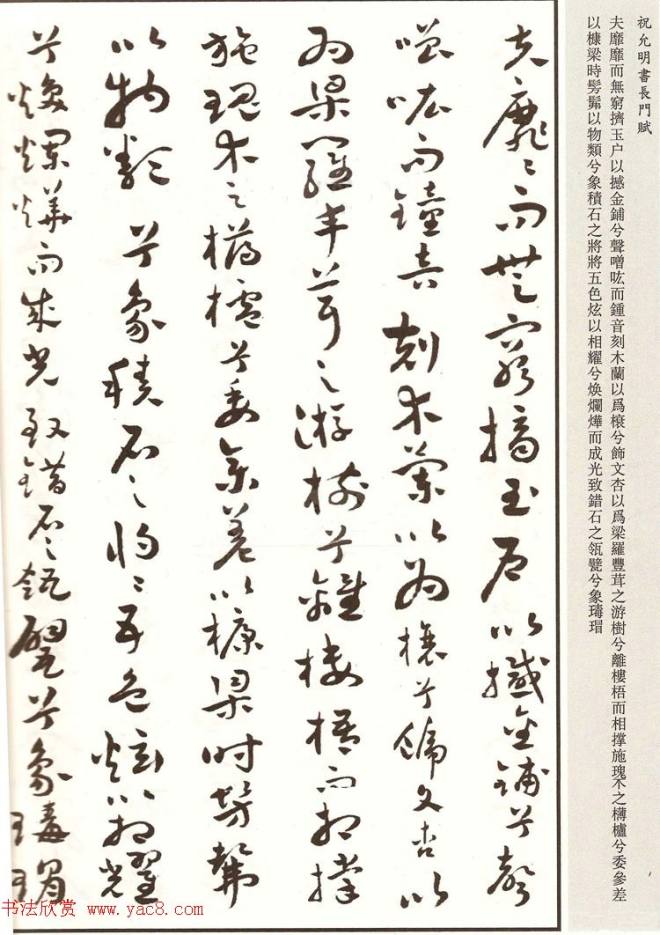 祝允明書長門賦
夫靡靡而無窮擠玉户以撼金鋪兮聲噌吰而鍾音刻木蘭以爲榱兮飾文杏以爲梁羅豐茸之游樹兮離樓梧而相撑施瑰木之欂櫨兮委參差
以槺梁時髣髴以物類兮象積石之將將五色炫以相耀兮焕爛爗而成光致錯石之瓴甓兮象瑇瑁
夫靡〻而無窮擠玉户以撼金鋪兮聲
噌吰而鐘音刻木蘭以为榱兮飾文杏以
为梁羅丰茸之游樹兮離楼梧而相撑
施瑰木之欂櫨兮委參差以槺梁時髣髴
以物類兮象積石之將〻五色炫以相耀
兮焕爛爗而成光致錯石之瓴甓兮象瑇瑁
书法欣赏 www.yac8.com